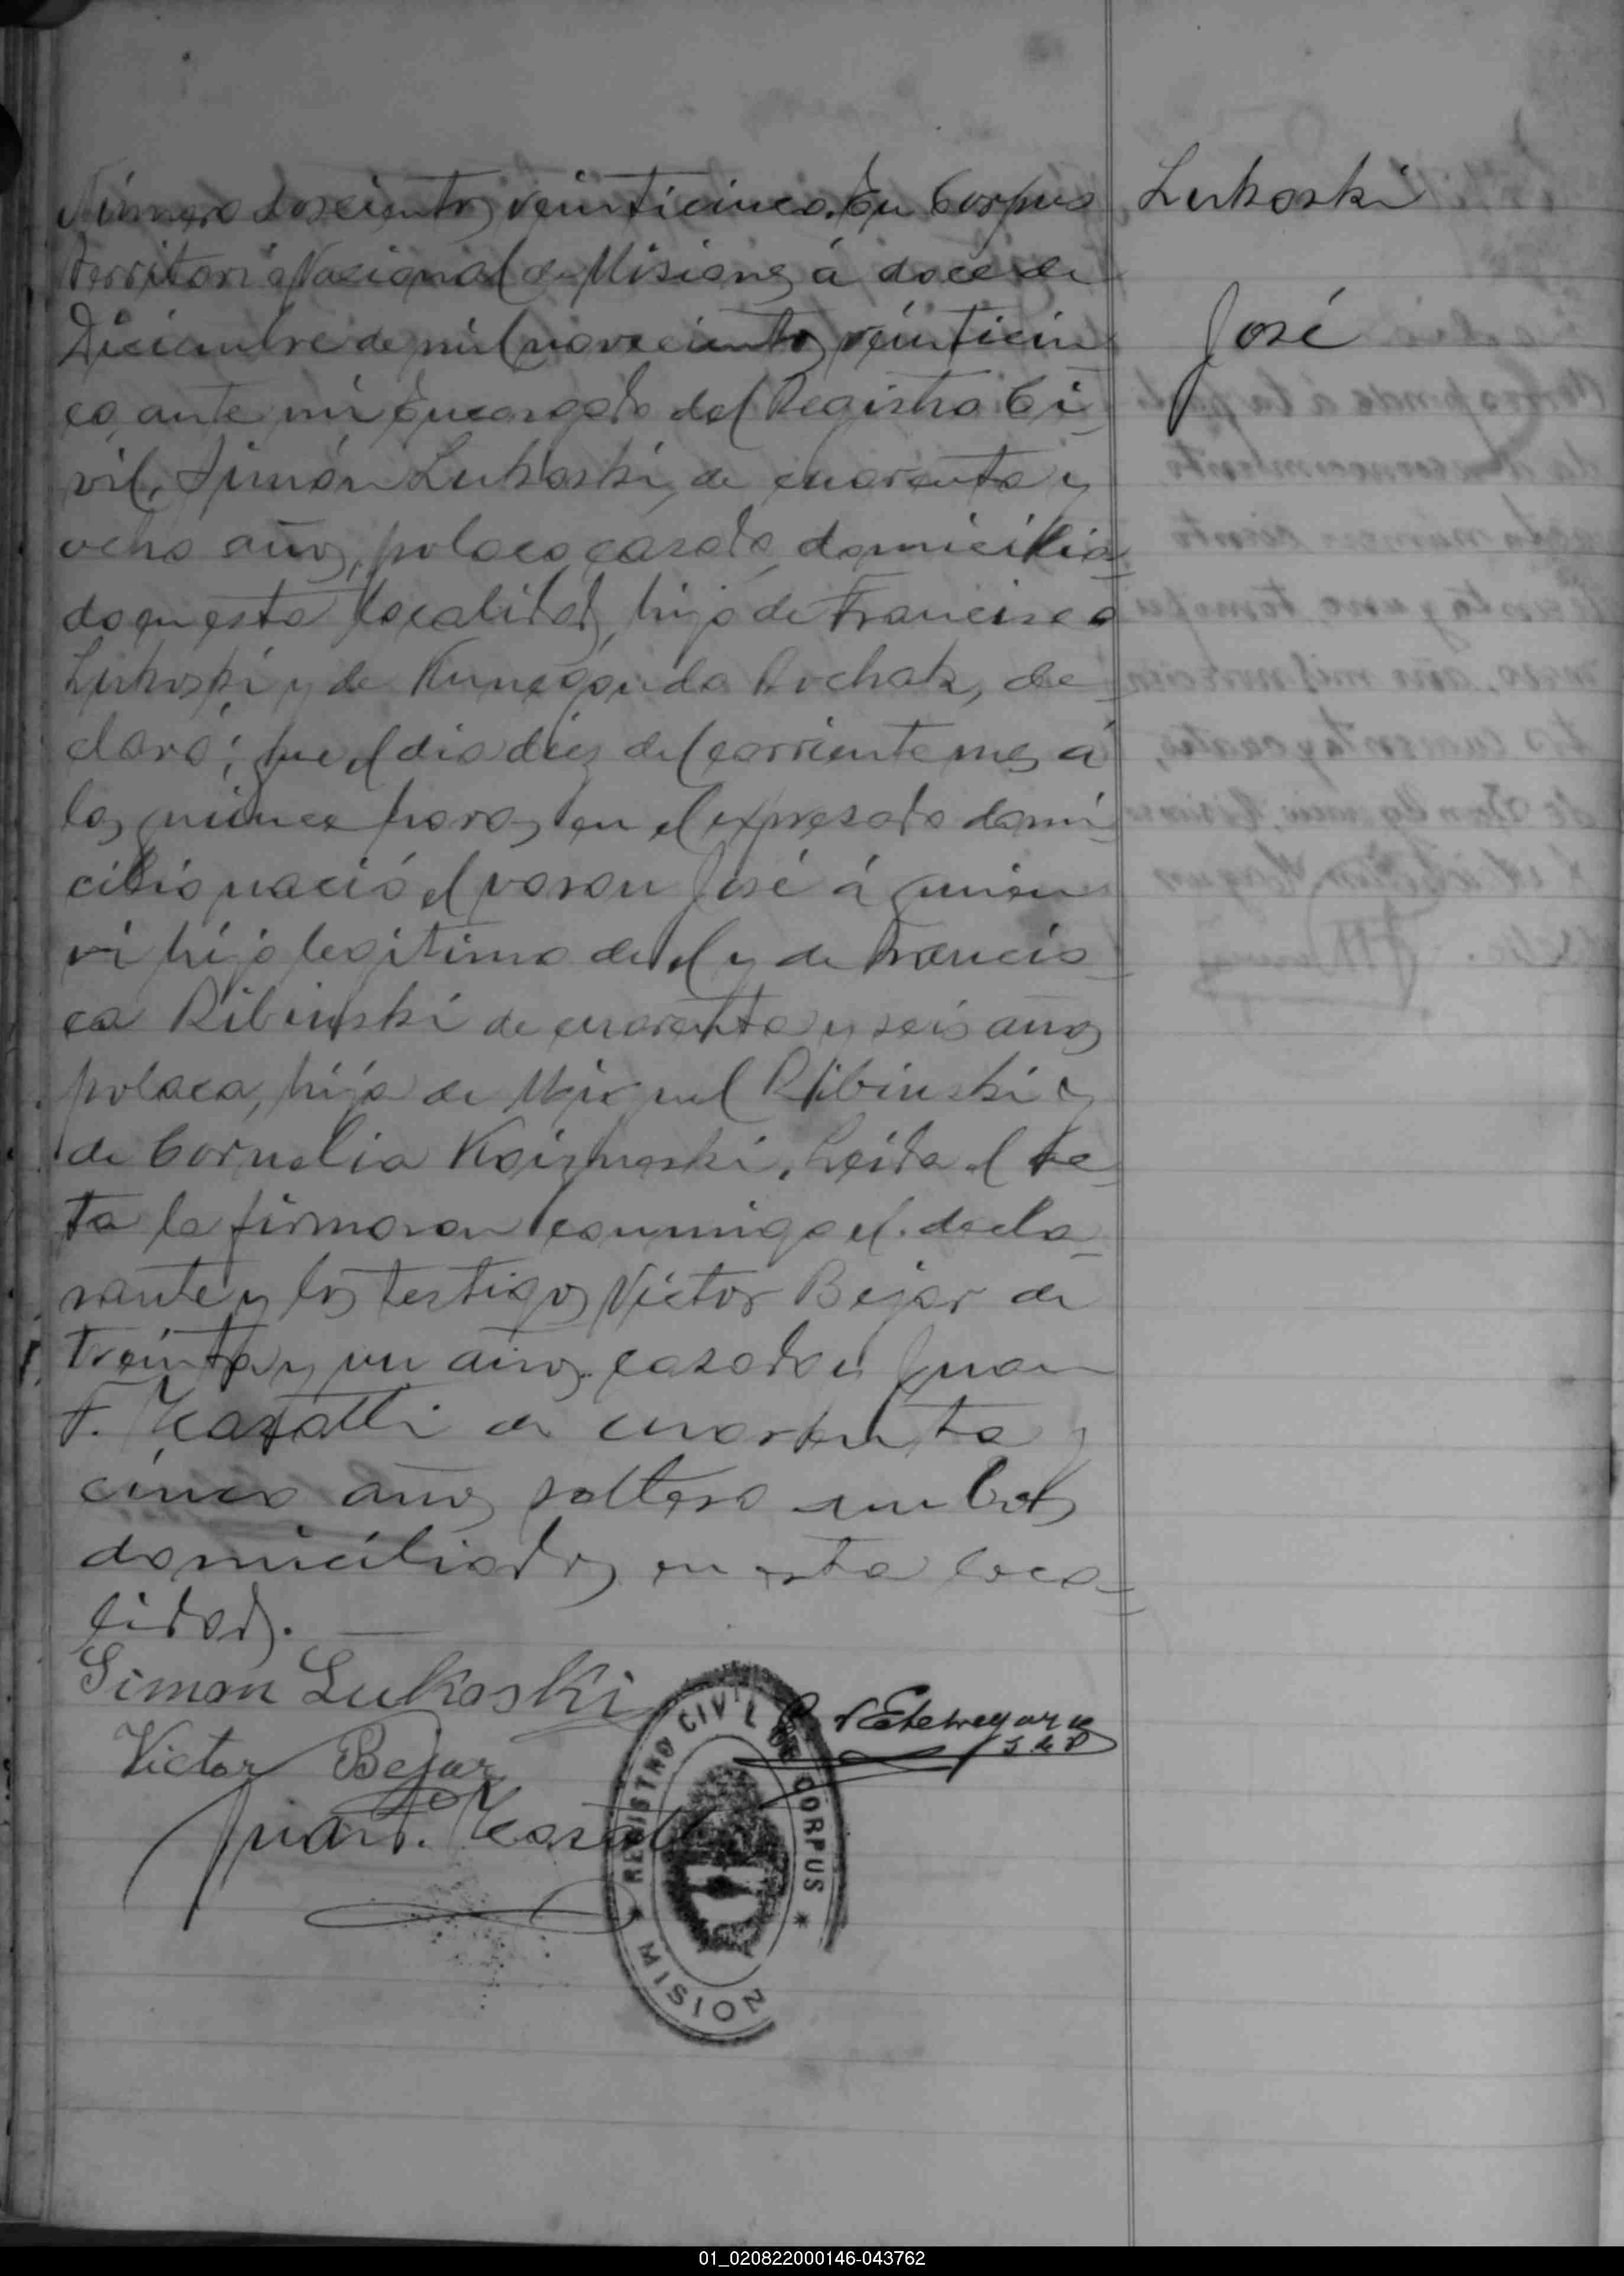 Lukoski
José
Número doscientos veinticinco. En Corpus
Territorio Nacional de Misiones á doce de
Diciembre de mil novecientos veinticin
co, ante mi Encargado del Registro Ci
vil, Simón Lukoski, de cuarenta y
ocho años, polaco, casado, domicilia
do en esta localidad, hijo de Francisco
Lukoski y de Kunegunda Rochak, de
claró: que el dia diez del corriente mes á
las quince horas, en el expresado domi
cilio nació el varon José á quien
vi hijo legitimo de el y de Francis
ca Ribinski de cuarenta y seis años
polaca, hija de Miguel Ribinski y
de Cornelia. Leida el ac
ta la firmaron conmigo el declo
rante y los testigos Victor Bejar de
treinta y un años casado y Juan
F. de cuarenta y
cinco años soltero ambos
domiciliados en esta loca
lidad.
Simon Lukoski
Victor Bejar
Juan F.
REGISTRO CIVIL DE CORPUS
MISION
01_020822000146-043762